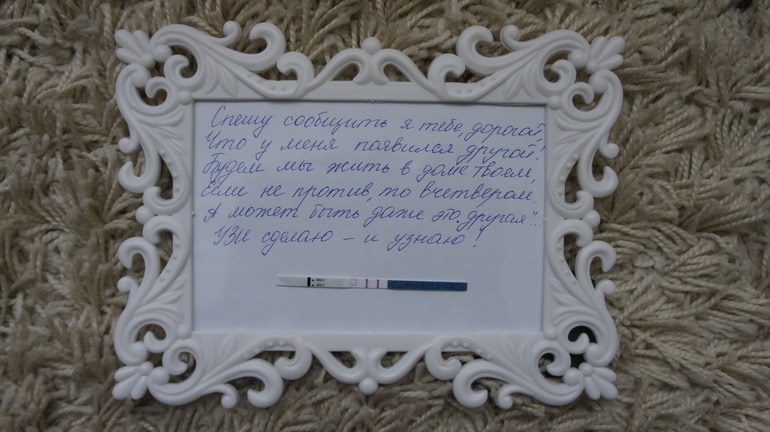 Спешу сообщить я тебе, дорогой,
Что у меня появился другой!
Будем мы жить в доме твоем,
Если не против, то вчетвером.
А может быть даже это „другая“...
УЗИ сделаю – и узнаю!